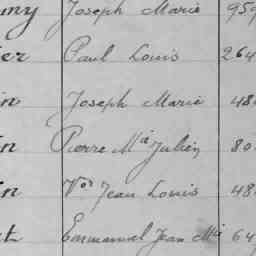 my Joseph Marie 959
er Paul Louis 264
in Joseph Marie 48
n Pierre Mie Julien 80
in Vor Jean Louis 48
et Emmanuel Jean Mie 64